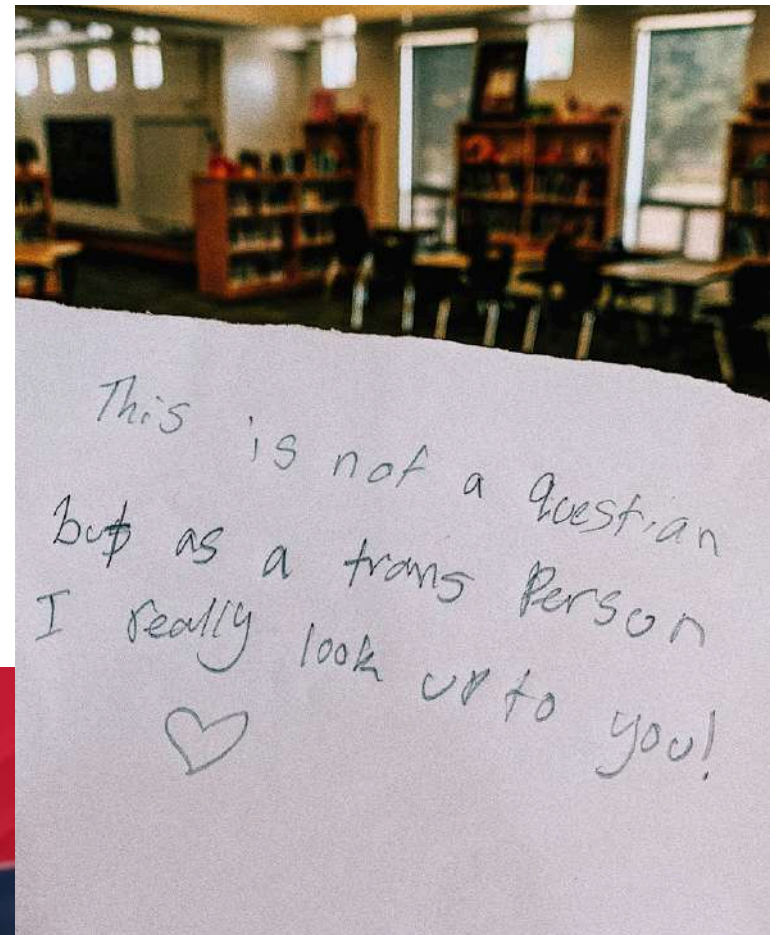 This is not a Questian
but as a trans Person
I really look up to you!